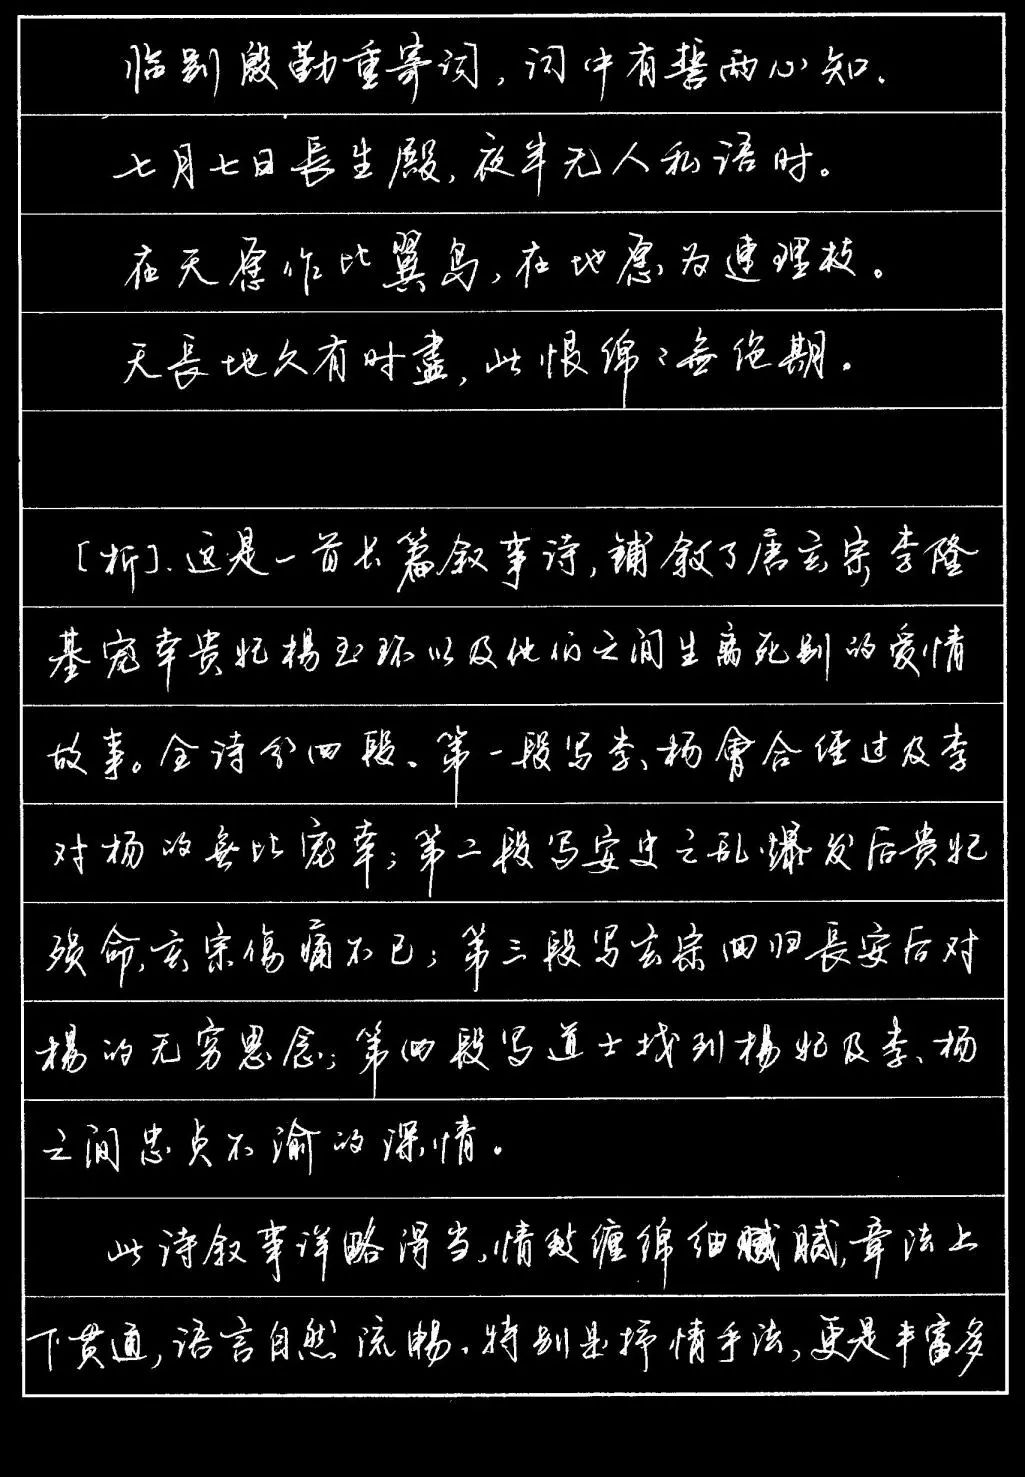 临别殷勤重寄词,词中有誓两心知.
七月七日長生殿,夜半无人私语时。
在天愿作比翼鸟,在地愿为連理枝。
天長地久有时盡,此恨绵〻無绝期。
[析]、这是一首长篇叙事诗,铺叙了唐玄宗李隆
基宠幸贵妃楊玉环以及他们之间生离死别的爱情
故事。全诗分四段、第一段写李、杨會合经过及李
对杨的無比宠幸;第二段写安史之乱爆发后贵妃
殒命,玄宗傷痛不已;第三段写玄宗回归長安后对
楊的无穷思念;第四段写道士找到楊妃及李、杨
之间忠贞不渝的深情。
此诗叙事详略得当,情致缠绵细腻,章法上
下贯通,语言自然流畅。特别是抒情手法,更是丰富多